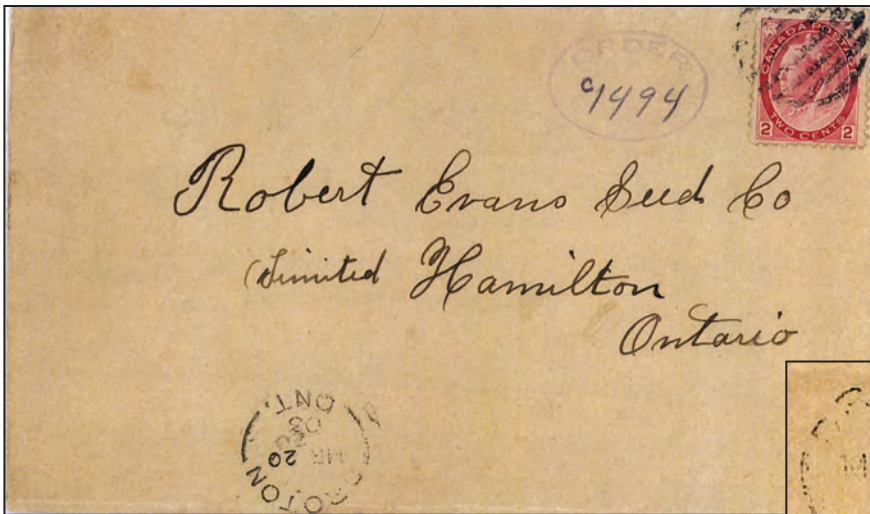 ORDER
1494
CANADA POSTAGE
2 TWO CENTS 2
Robert Evans Seed Co
Limited Hamilton
Ontario
PROTON
MR 20
03
ONT.